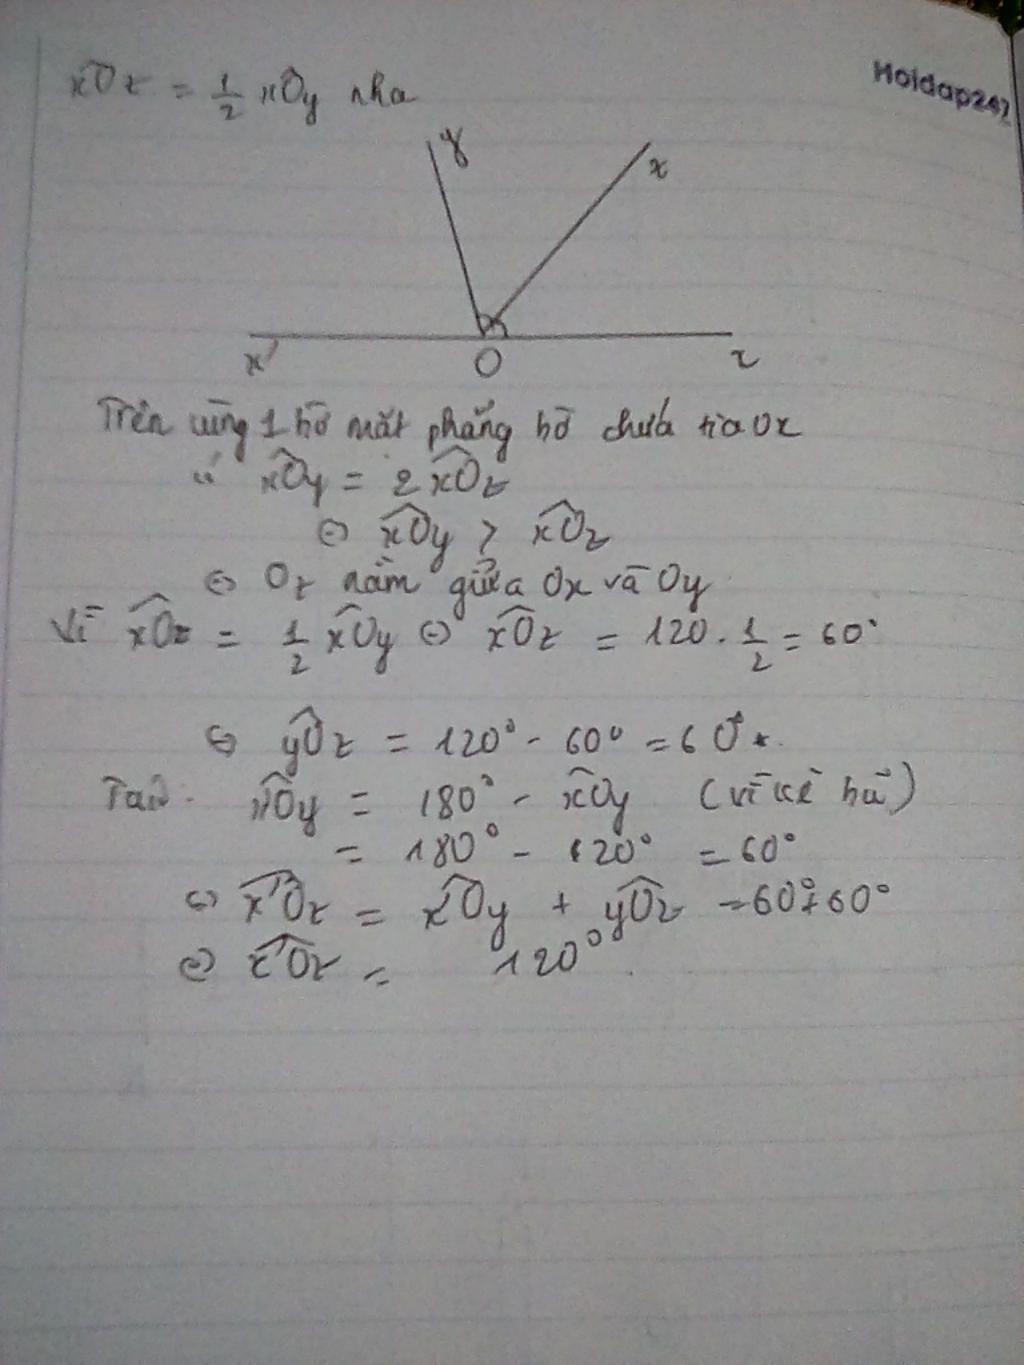 xOz = 1/2 xOy nha
Hoidap247
y
x
x'
O
z
Trên cùng 1 bờ mặt phẳng bờ chứa tia Ox
có xOy = 2 xOz
⇔ xOy > xOz
⇔ Oz nằm giữa Ox và Oy
Vì xOz = 1/2 xOy ⇔ xOz = 120 . 1/2 = 60°
⇔ yOz = 120° - 60° = 60°
x'Oy = 180° - xOy (vì kề bù)
= 180° - 120° = 60°
⇔ x'Oz = x'Oy + yOz = 60° + 60°
⇔ x'Oz = 120°.